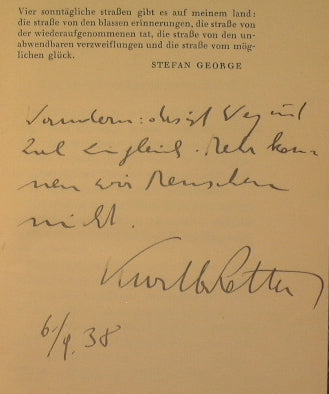 Vier sonntägliche straßen gibt es auf meinem land:
die straße von den blassen erinnerungen, die straße von
der wiederaufgenommenen tat, die straße von den un-
abwendbaren verzweiflungen und die straße vom mög-
lichen glück.
STEFAN GEORGE
Wandern: das ist Weg und
Ziel zugleich. Mehr kön-
nen wir Menschen
nicht.
6/9. 38